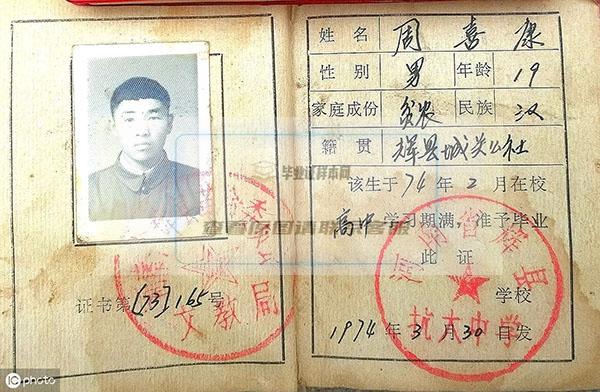 毕业证样本网
查看原图请联系客服
文教局
证书第〔73〕165号
姓名 周喜康
性别 男 年龄 19
家庭成份 贫农 民族 汉
籍贯 辉县城关公社
该生于74年2月在校
高中学习期满，准予毕业
此证
河南省辉县
学校
抗大中学
1974年3月30日发
iCphoto